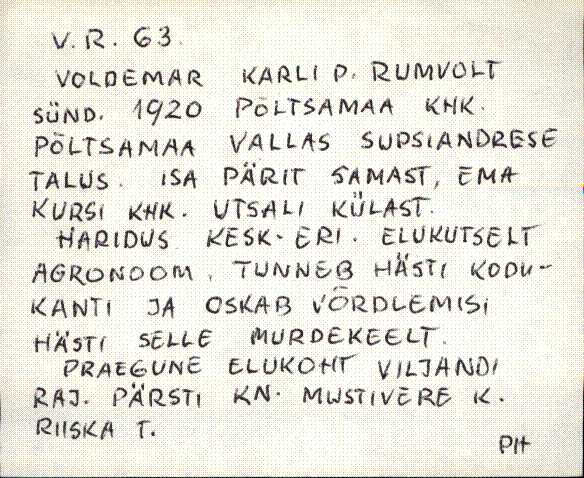 V. R. 63.
VOLDEMAR KARLI P. RUMVOLT
SÜND. 1920 PÕLTSAMAA KHK.
PÕLTSAMAA VALLAS SUPSIANDRESE
TALUS. ISA PÄRIT SAMAST, EMA
KURSI KHK. UTSALI KÜLAST.
HARIDUS KESK-ERI. ELUKUTSELT
AGRONOOM. TUNNEB HÄSTI KODU-
KANTI JA OSKAB VÕRDLEMISI
HÄSTI SELLE MURDEKEELT.
PRAEGUNE ELUKOHT VILJANDI
RAJ. PÄRSTI KN. MUSTIVERE K.
RIISKA T.
PH